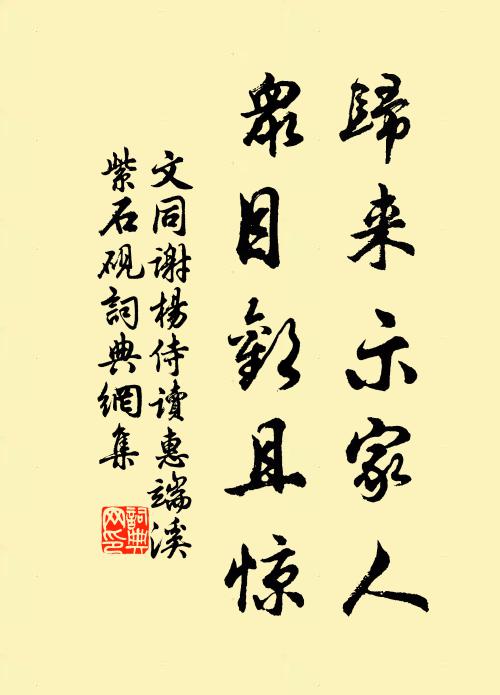 歸来示家人
衆目歡且惊
文同謝楊侍讀惠端溪
紫石硯詞典網集
詞典
网印